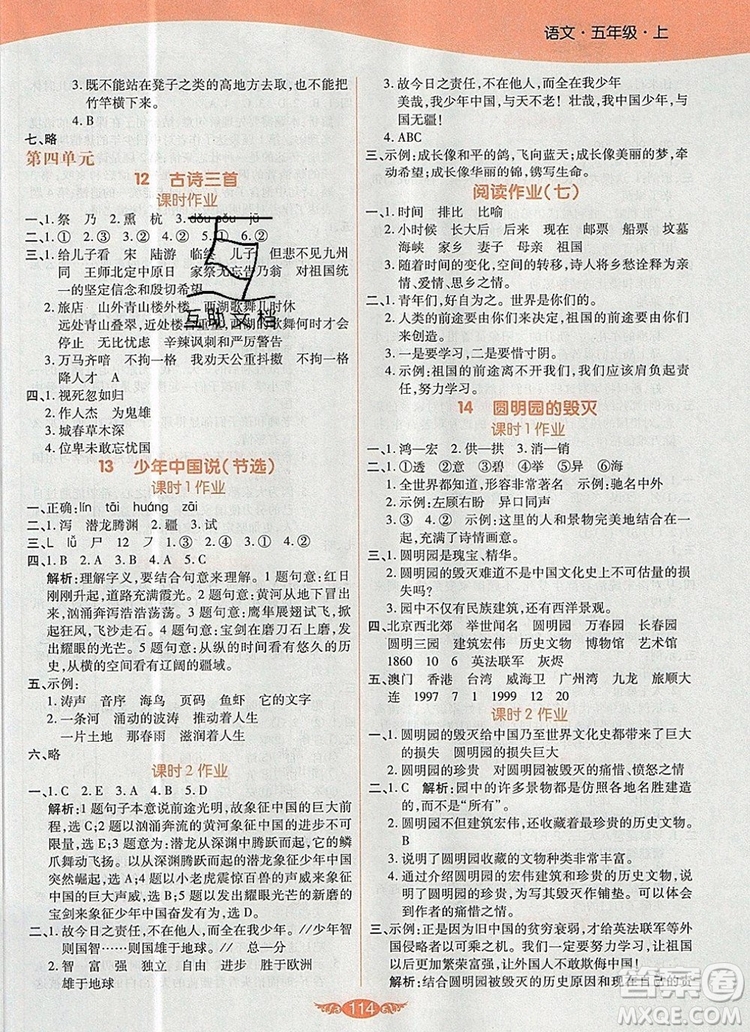 语文·五年级·上
3. 既不能站在凳子之类的高地方去取，也不能把
竹竿横下来。
4. B
七、略
第四单元
12 古诗三首
课时作业
一、1. 祭 乃 2. 熏 杭 3. dǒu sǒu jiū
二、1. ① 2. ② 3. ③ 4. ③
三、1. 给儿子看 宋 陆游 临终 儿子 但悲不见九州
同 王师北定中原日 家祭无忘告乃翁 对祖国统
一的坚定信念和殷切希望
2. 旅店 山外青山楼外楼 西湖歌舞几时休
远处青山叠翠，近处楼台重重，西湖的歌舞什么时候
停止 无比忧虑 辛辣讽刺和严厉警告
3. 万马齐喑 不拘一格 我劝天公重抖擞 不拘一格
降人才 A
四、1. 视死忽如归
2. 作人杰 为鬼雄
3. 城春草木深
4. 位卑未敢忘忧国
13 少年中国说(节选)
课时 1 作业
一、正确：lín tāi huáng zāi
二、1. 泻 潜龙腾渊 2. 疆 3. 试
三、L lǜ 尸 12 ④ ② ① ③
四、1. B 2. B 3. A 4. A 5. C
解析：理解字义，要结合句意来理解。1 题句意：红日
刚刚升起，道路充满霞光。2 题句意：黄河从地下
冒出来，汹涌奔泻浩浩荡荡。3 题句意：潜龙从深渊
中腾跃而起，它的鳞爪舞动飞扬；小老虎在山谷吼
叫，所有的野兽都害怕惊慌；雄鹰隼展翅试飞，掀起
狂风，飞沙走石。4 题句意：宝剑在磨刀石上磨出，发
出耀眼的光芒。5 题句意：从纵的时间看有悠久的历
史，从横的空间看有辽阔的疆域。
五、示例：
1. 涛声 音序 海鸟 页码 鱼虾 它的文字
2. 一条河 涌动的波涛 推动着人生
一片土地 那春雨 滋润着人生
六、略
课时 2 作业
一、1. C 2. E 3. A 4. B 5. D
解析：1 题句子本意说前途光明，故象征中国的巨大前
程，选 C；2 题以汹涌奔流的黄河象征中国的进步不可
限量，所以选 E；3 题以深渊腾跃而起的潜龙，它的鳞
爪舞动飞扬；以从深渊腾跃而起的潜龙象征中国
突然崛起，选 A；4 题以小老虎震惊百兽象征中国的
巨大声威，故选 B；5 题以发出耀眼光芒的新磨的
宝剑象征中国奋发有为，所以选 D。
二、1. 故今日之责任，不在他人，而全在我少年。//少年智
则国智……则国雄于地球。// 总—分
2. 智 富 强 独立 自由 进步 胜于欧洲
雄于地球
3. 故今日之责任，不在他人，而全在我少年。
美哉，我少年中国，与天不老！壮哉，我中国少年，与国
无疆！
4. ABC
三、示例：成长像和平的鸽，飞向蓝天；成长像美丽的梦，
牵动希望；成长像华丽的锦，镌写生命。
阅读作业(七)
一、1. 时间 排比 比喻
2. 小时候 长大后 后来 现在 邮票 船票 坟墓
海峡 家乡 妻子 母亲 祖国
3. 随着时间的变化，空间的转移，诗人将乡愁诠释为亲
情、爱情、思乡之情。
二、1. 青年们，好自为之。世界是你们的。
2. 人类的前途要由你们来决定，祖国的前途要由你们
来创造。
3. 一是要学习。二是要爱惜寸阴。
4. 示例：祖国的前途离不开我们，我们要爱惜光阴，
努力学习。
14 圆明园的毁灭
课时 1 作业
一、1. 鸿—宏 2. 供—拱 3. 消—销
二、1. ①凭 ②透 ③碧 ④举 ⑤海 ⑥异
2. 全世界都知道，形容非常著名 示例：驰名中外
3. 示例：左顾右盼 异口同声
4. ③ ④ 示例：这里的人和景物完美地结合在一
起，充满了诗情画意。
三、1. 圆明园是瑰宝、精华。
2. 圆明园的毁灭难道不是中国文化史上不可估量的
损失吗？
3. 园中不仅有民族建筑，还有西洋景观。
四、北京西北郊 举世闻名 万春园 长春园
圆明三园 建筑宏伟 历史文物 博物馆 艺术馆
1860 10 6 英法联军 灰烬
五、澳门 香港 台湾 威海卫 广州湾 九龙 旅顺大
连 1997 7 1 1999 12 20
课时 2 作业
一、1. 圆明园的毁灭给中国乃至世界文化都带来了巨大
的损失 圆明园的损失巨大
2. 圆明园的珍贵 对圆明园毁灭的痛惜、愤怒之情
二、1. C 解析：园中的许多景物都是仿造的，但不
是“所有”。
2. 圆明园不但建筑宏伟，还收藏着最珍贵的历史文物。
3. 说明了圆明园收藏的文物种类非常丰富。
4. 通过介绍圆明园的宏伟建筑和珍贵历史文物，说明
了圆明园的珍贵，为写毁灭作铺垫。
三、示例：正是因为旧中国的贫穷衰弱，才给了英法联军等
外国侵略者可乘之机。我们今后要努力学习，让祖国
更加繁荣富强，让外敌不敢再欺侮中国！
解析：结合圆明园的历史原因和现在自己的责
114
互助文档
答案圈
MXQE.COM